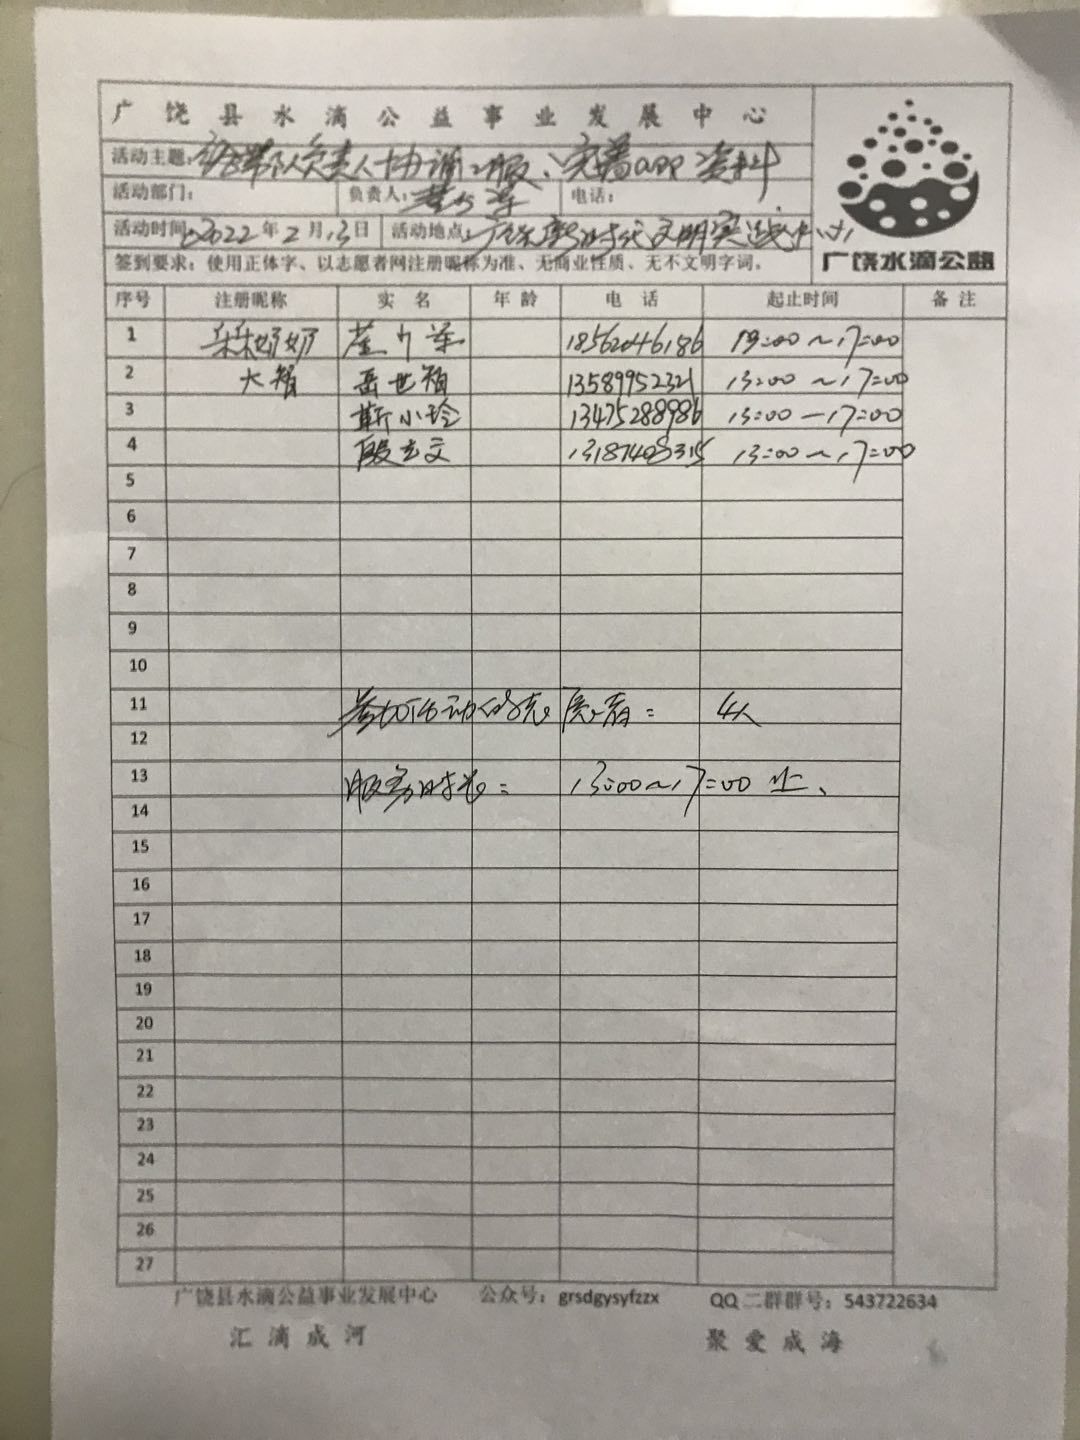 广饶县水滴公益事业发展中心
活动主题: 负责人协调 服、完善app资料
活动部门: 负责人: 电话:
活动时间: 2022年2月13日 活动地点: 广饶新时代文明实践中心
签到要求: 使用正体字、以志愿者网注册昵称为准、无商业性质、无不文明字词。
广饶水滴公益
序号 注册昵称 实名 年龄 电话 起止时间 备注
1 朵朵奶奶 18562046186 13:00~17:00
2 大智 岳世智 13589952321 13:00~17:00
3 靳小玲 13475288986 13:00—17:00
4 殷立文 13187408315 13:00~17:00
5
6
7
8
9
10
11 参加活动的志愿者: 4人
12
13 服务时长: 13:00~17:00止、
14
15
16
17
18
19
20
21
22
23
24
25
26
27
广饶县水滴公益事业发展中心 公众号: grsdgysyfzzx QQ二群群号: 543722634
汇滴成河 聚爱成海